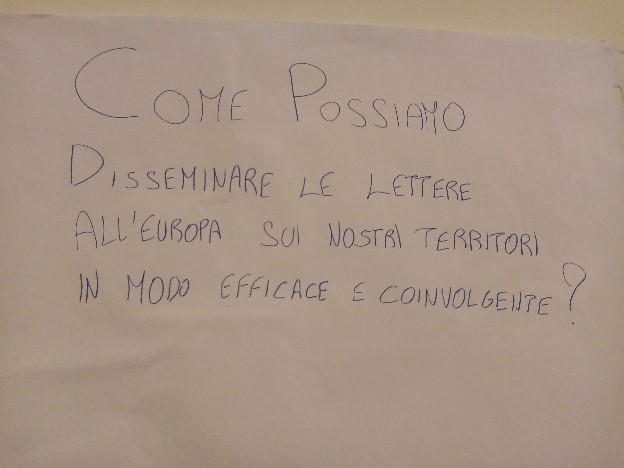 COME POSSIAMO
DISSEMINARE LE LETTERE
ALL'EUROPA SUI NOSTRI TERRITORI
IN MODO EFFICACE E COINVOLGENTE?